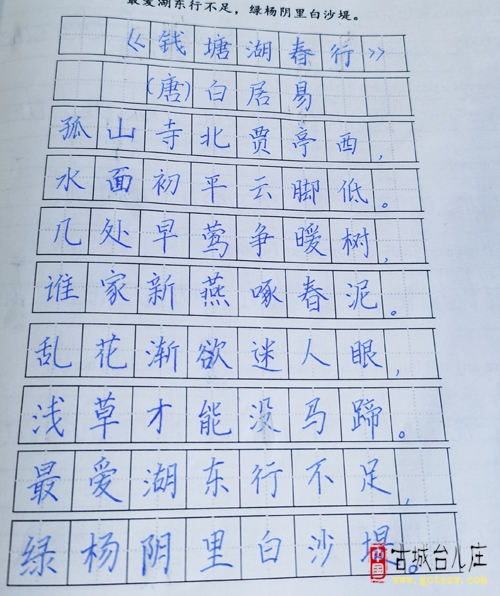 最爱湖东行不足，绿杨阴里白沙堤。
《钱塘湖春行》
(唐)白居易
孤山寺北贾亭西，
水面初平云脚低。
几处早莺争暖树，
谁家新燕啄春泥。
乱花渐欲迷人眼，
浅草才能没马蹄。
最爱湖东行不足，
绿杨阴里白沙堤。
古城台儿庄